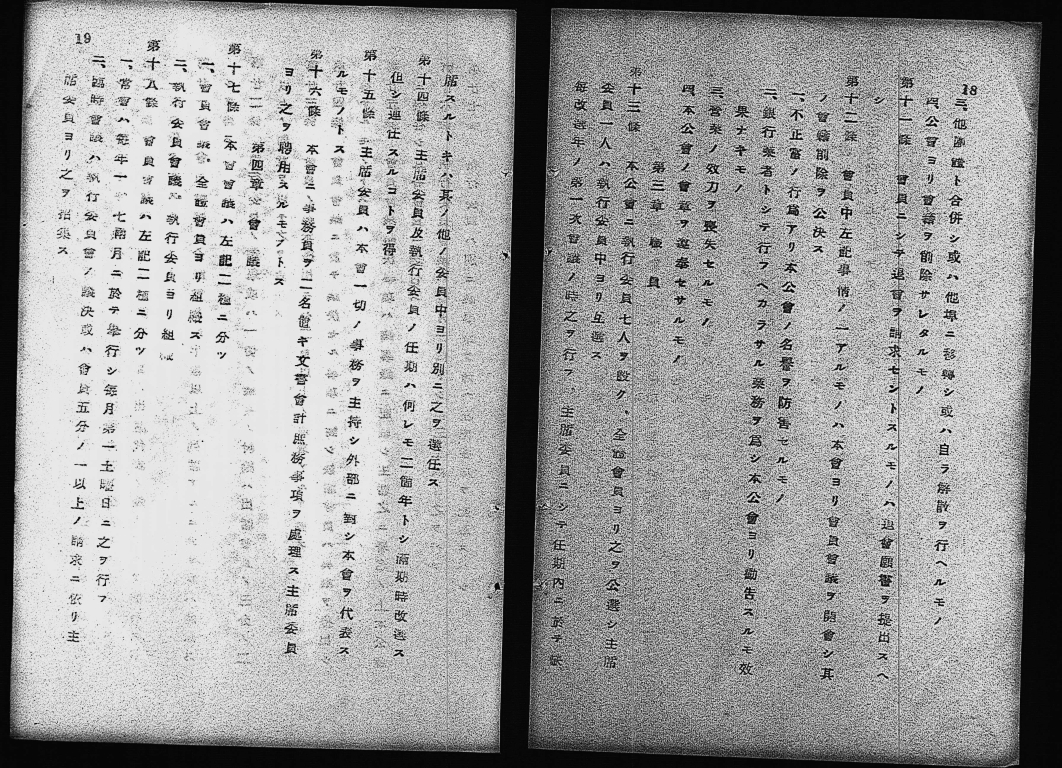 18
三、他ノ　ト合併シ或ハ他埠ニ移轉シ或ハ自ラ解散ヲ行ヘルモノ
四、公會ヨリ會籍ヲ削除サレタルモノ
第十一條　會員ニシテ退會ヲ請求セントスルモノハ退會願書ヲ提出スヘ
シ
第十二條　會員中左記事情ノ一アルモノハ本會ヨリ會員會議ヲ開會シ其
ノ會籍削除ヲ公決ス
一、不正當ノ行爲アリ本公會ノ名譽ヲ防害セルモノ
二、銀行業者トシテ行フヘカラサル業務ヲ爲シ本公會ヨリ勸告スルモ效
果ナキモノ
三、營業ノ效力ヲ喪失セルモノ
四、本公會ノ會章ヲ遵奉セサルモノ
第三章　職員
第十三條　本公會ニ執行委員七人ヲ設ク、全體會員ヨリ之ヲ公選シ主席
委員一人ハ執行委員中ヨリ互選ス
每改選年ノ第一次會議ノ時之ヲ行フ　主席委員ニシテ任期內ニ於テ缺
19
席スルトキハ其ノ他ノ委員中ヨリ別ニ之ヲ選任ス
第十四條　主席委員及執行委員ノ任期ハ何レモ二個年トシ滿期時改選ス
但シ連任スルコトヲ得
第十五條　主席委員ハ本會一切ノ事務ヲ主持シ外部ニ對シ本會ヲ代表ス
ルモノトス
第十六條　本會ニ事務員ヲ二名置キ文書會計庶務事項ヲ處理ス主席委員
ヨリ之ヲ聘用スルモノトス
第四章　會議
第十七條　本會會議ハ左記二種ニ分ツ
一、會員會議、全體會員ヨリ組織ス
二、執行委員會議、執行委員ヨリ組織
第十八條　會員會議ハ左記二種ニ分ツ
一、常會ハ每年一、七兩月ニ於テ擧行シ每月第一土曜日ニ之ヲ行フ
二、臨時會議ハ執行委員會ノ議決或ハ會員五分ノ一以上ノ請求ニ依リ主
席委員ヨリ之ヲ招集ス